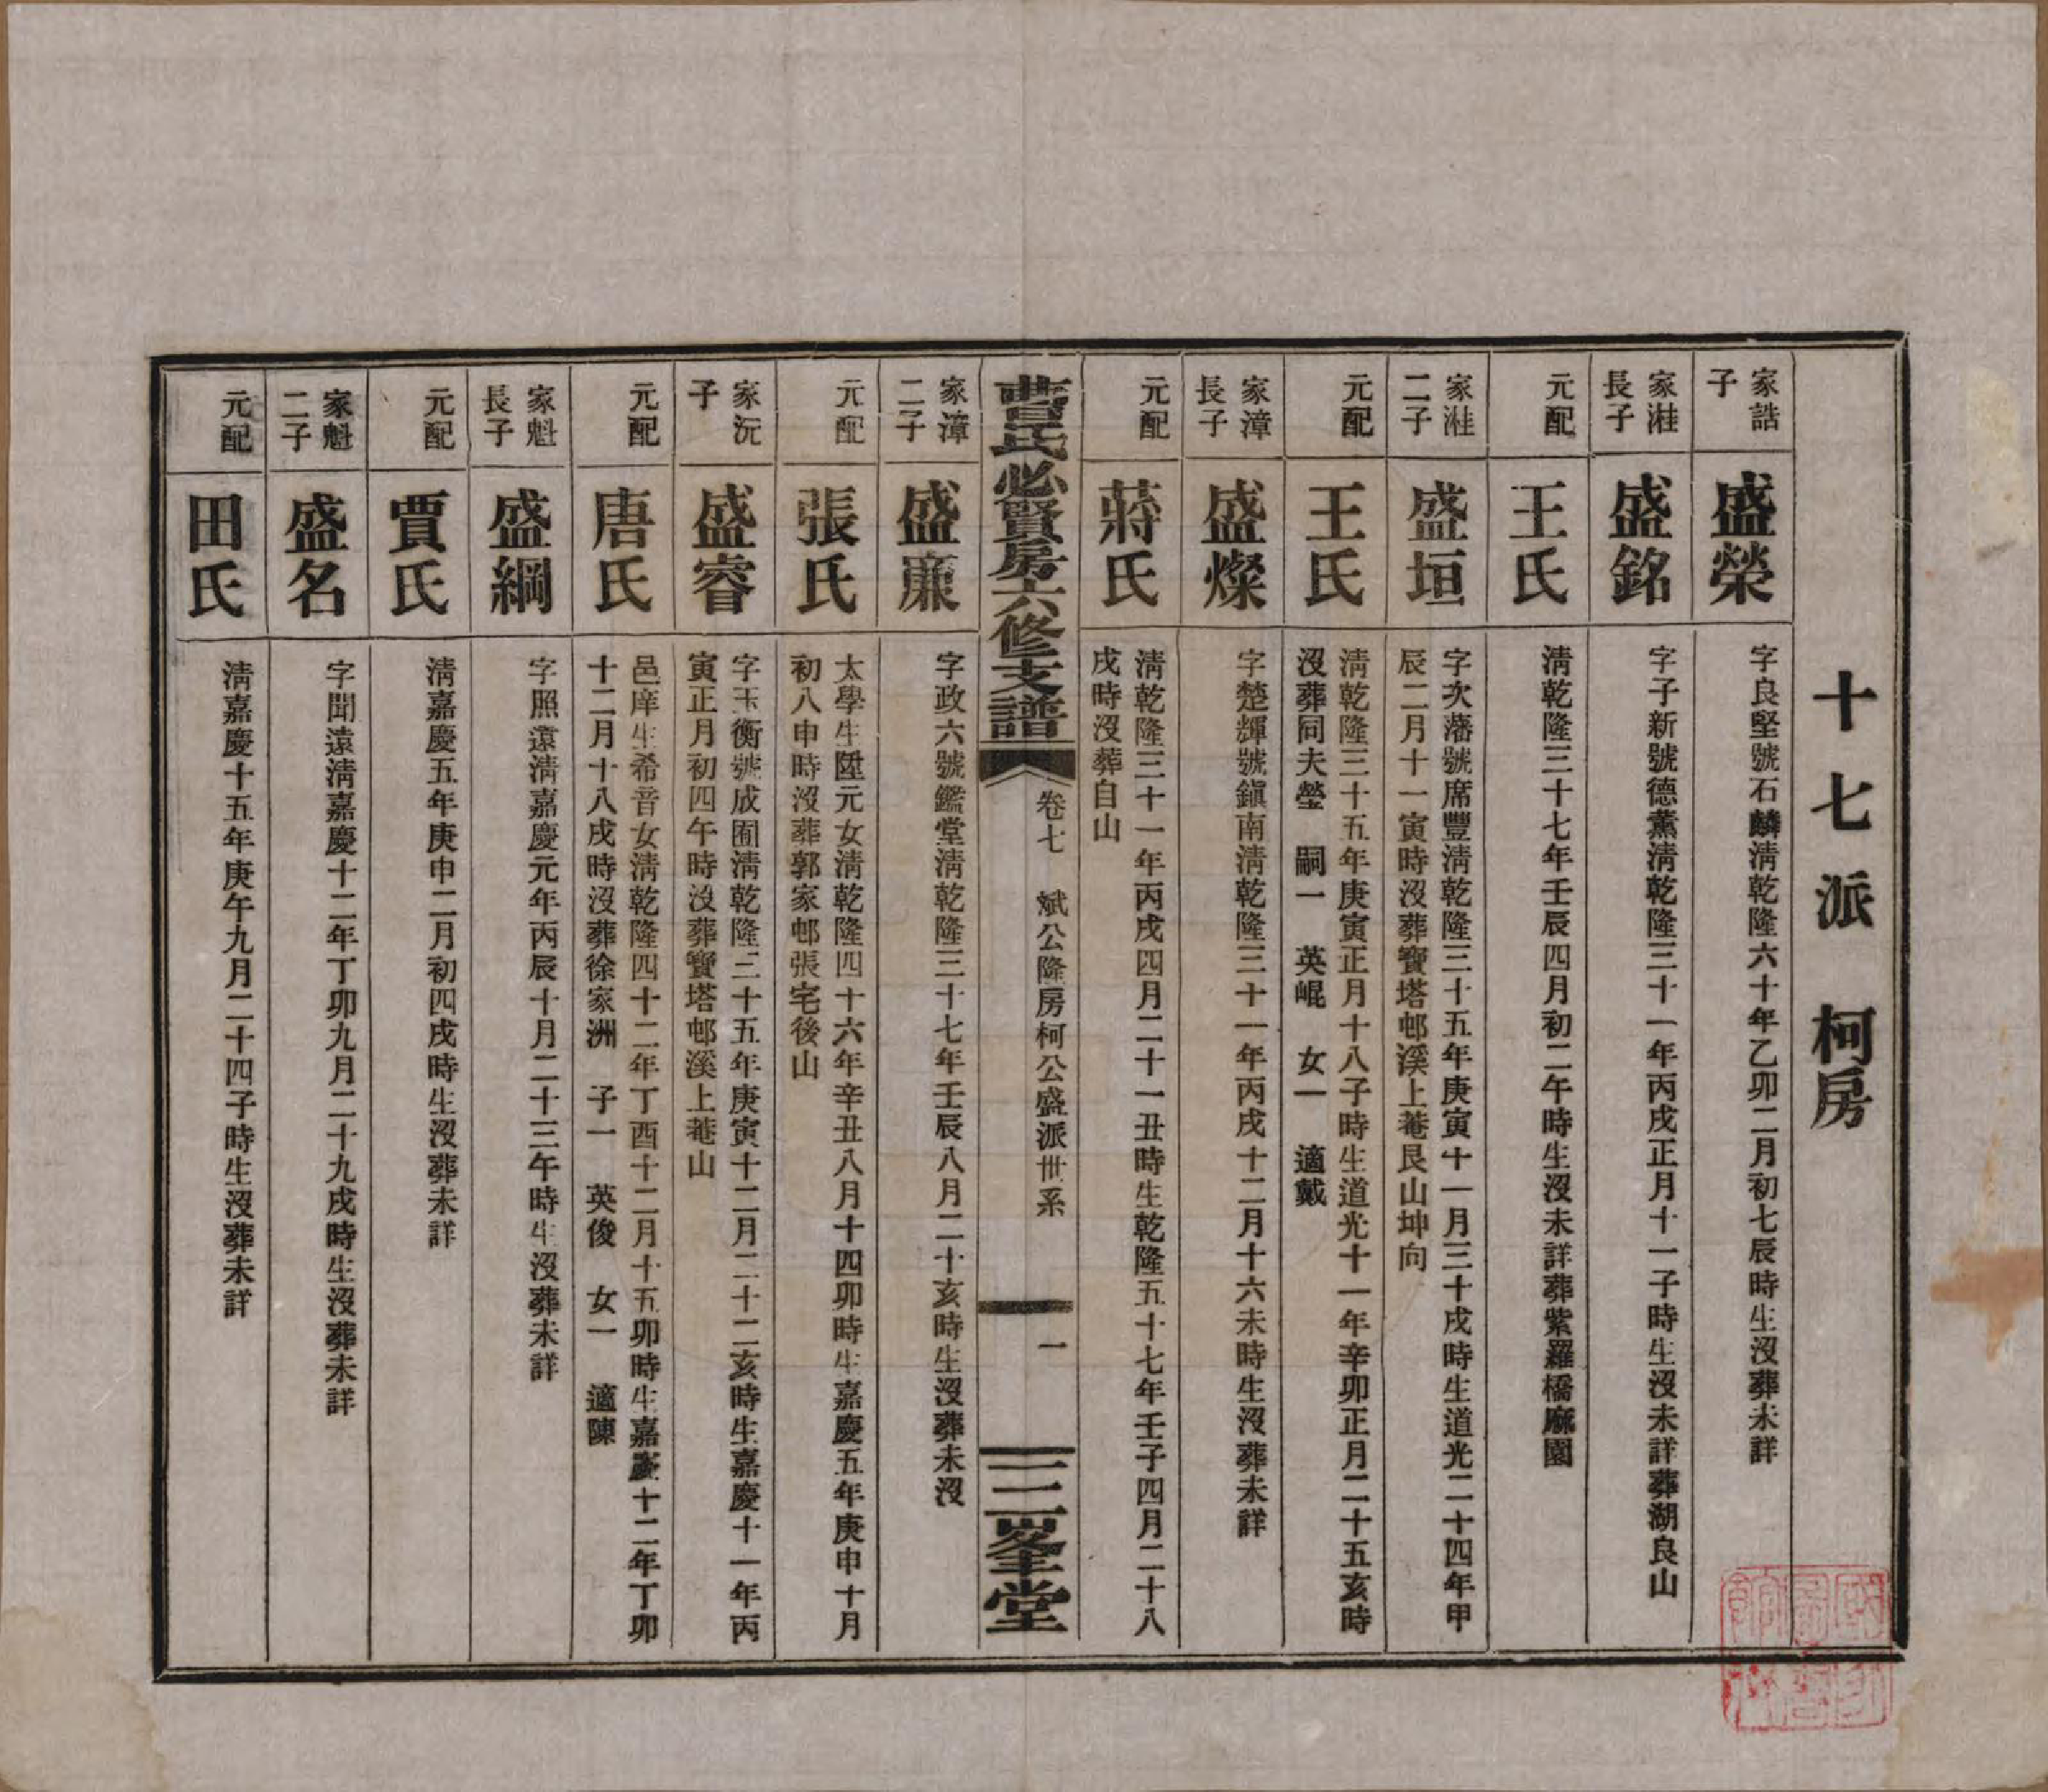 十七派 柯房
家誥
子
盛榮
字良堅號石麟淸乾隆六十年乙卯二月初七辰時生沒葬未詳
家溎
長子
盛銘
字子新號德薰淸乾隆三十一年丙戌正月十一子時生沒未詳葬湖良山
元配
王氏
淸乾隆三十七年壬辰四月初二午時生沒未詳葬紫羅橋麻園
家溎
二子
盛垣
字次藩號席豐淸乾隆三十五年庚寅十一月三十戌時生道光二十四年甲
辰二月十一寅時沒葬寶塔邨溪上菴艮山坤向
元配
王氏
淸乾隆三十五年庚寅正月十八子時生道光十一年辛卯正月二十五亥時
沒葬同夫塋 嗣一 英崐 女一 適戴
家漳
長子
盛燦
字楚輝號鎭南淸乾隆三十一年丙戌十二月十六未時生沒葬未詳
元配
蔣氏
淸乾隆三十一年丙戌四月二十一丑時生乾隆五十七年壬子四月二十八
戌時沒葬自山
曹氏必賢房六修支譜
卷七 斌公隆房柯公盛派世系
一
三峯堂
家漳
二子
盛廉
字政六號鑑堂淸乾隆三十七年壬辰八月二十亥時生沒葬未沒
元配
張氏
太學生陞元女淸乾隆四十六年辛丑八月十四卯時生嘉慶五年庚申十月
初八申時沒葬郭家邨張宅後山
家沅
子
盛睿
字玉衡號成囿淸乾隆三十五年庚寅十二月二十二亥時生嘉慶十一年丙
寅正月初四午時沒葬寶塔邨溪上菴山
元配
唐氏
邑庠生希音女淸乾隆四十二年丁酉十二月十五卯時生嘉慶十二年丁卯
十二月十八戌時沒葬徐家洲 子一 英俊 女一 適陳
家魁
長子
盛綱
字照遠淸嘉慶元年丙辰十月二十三午時生沒葬未詳
元配
賈氏
淸嘉慶五年庚申二月初四戌時生沒葬未詳
家魁
二子
盛名
字聞遠淸嘉慶十二年丁卯九月二十九戌時生沒葬未詳
元配
田氏
淸嘉慶十五年庚午九月二十四子時生沒葬未詳